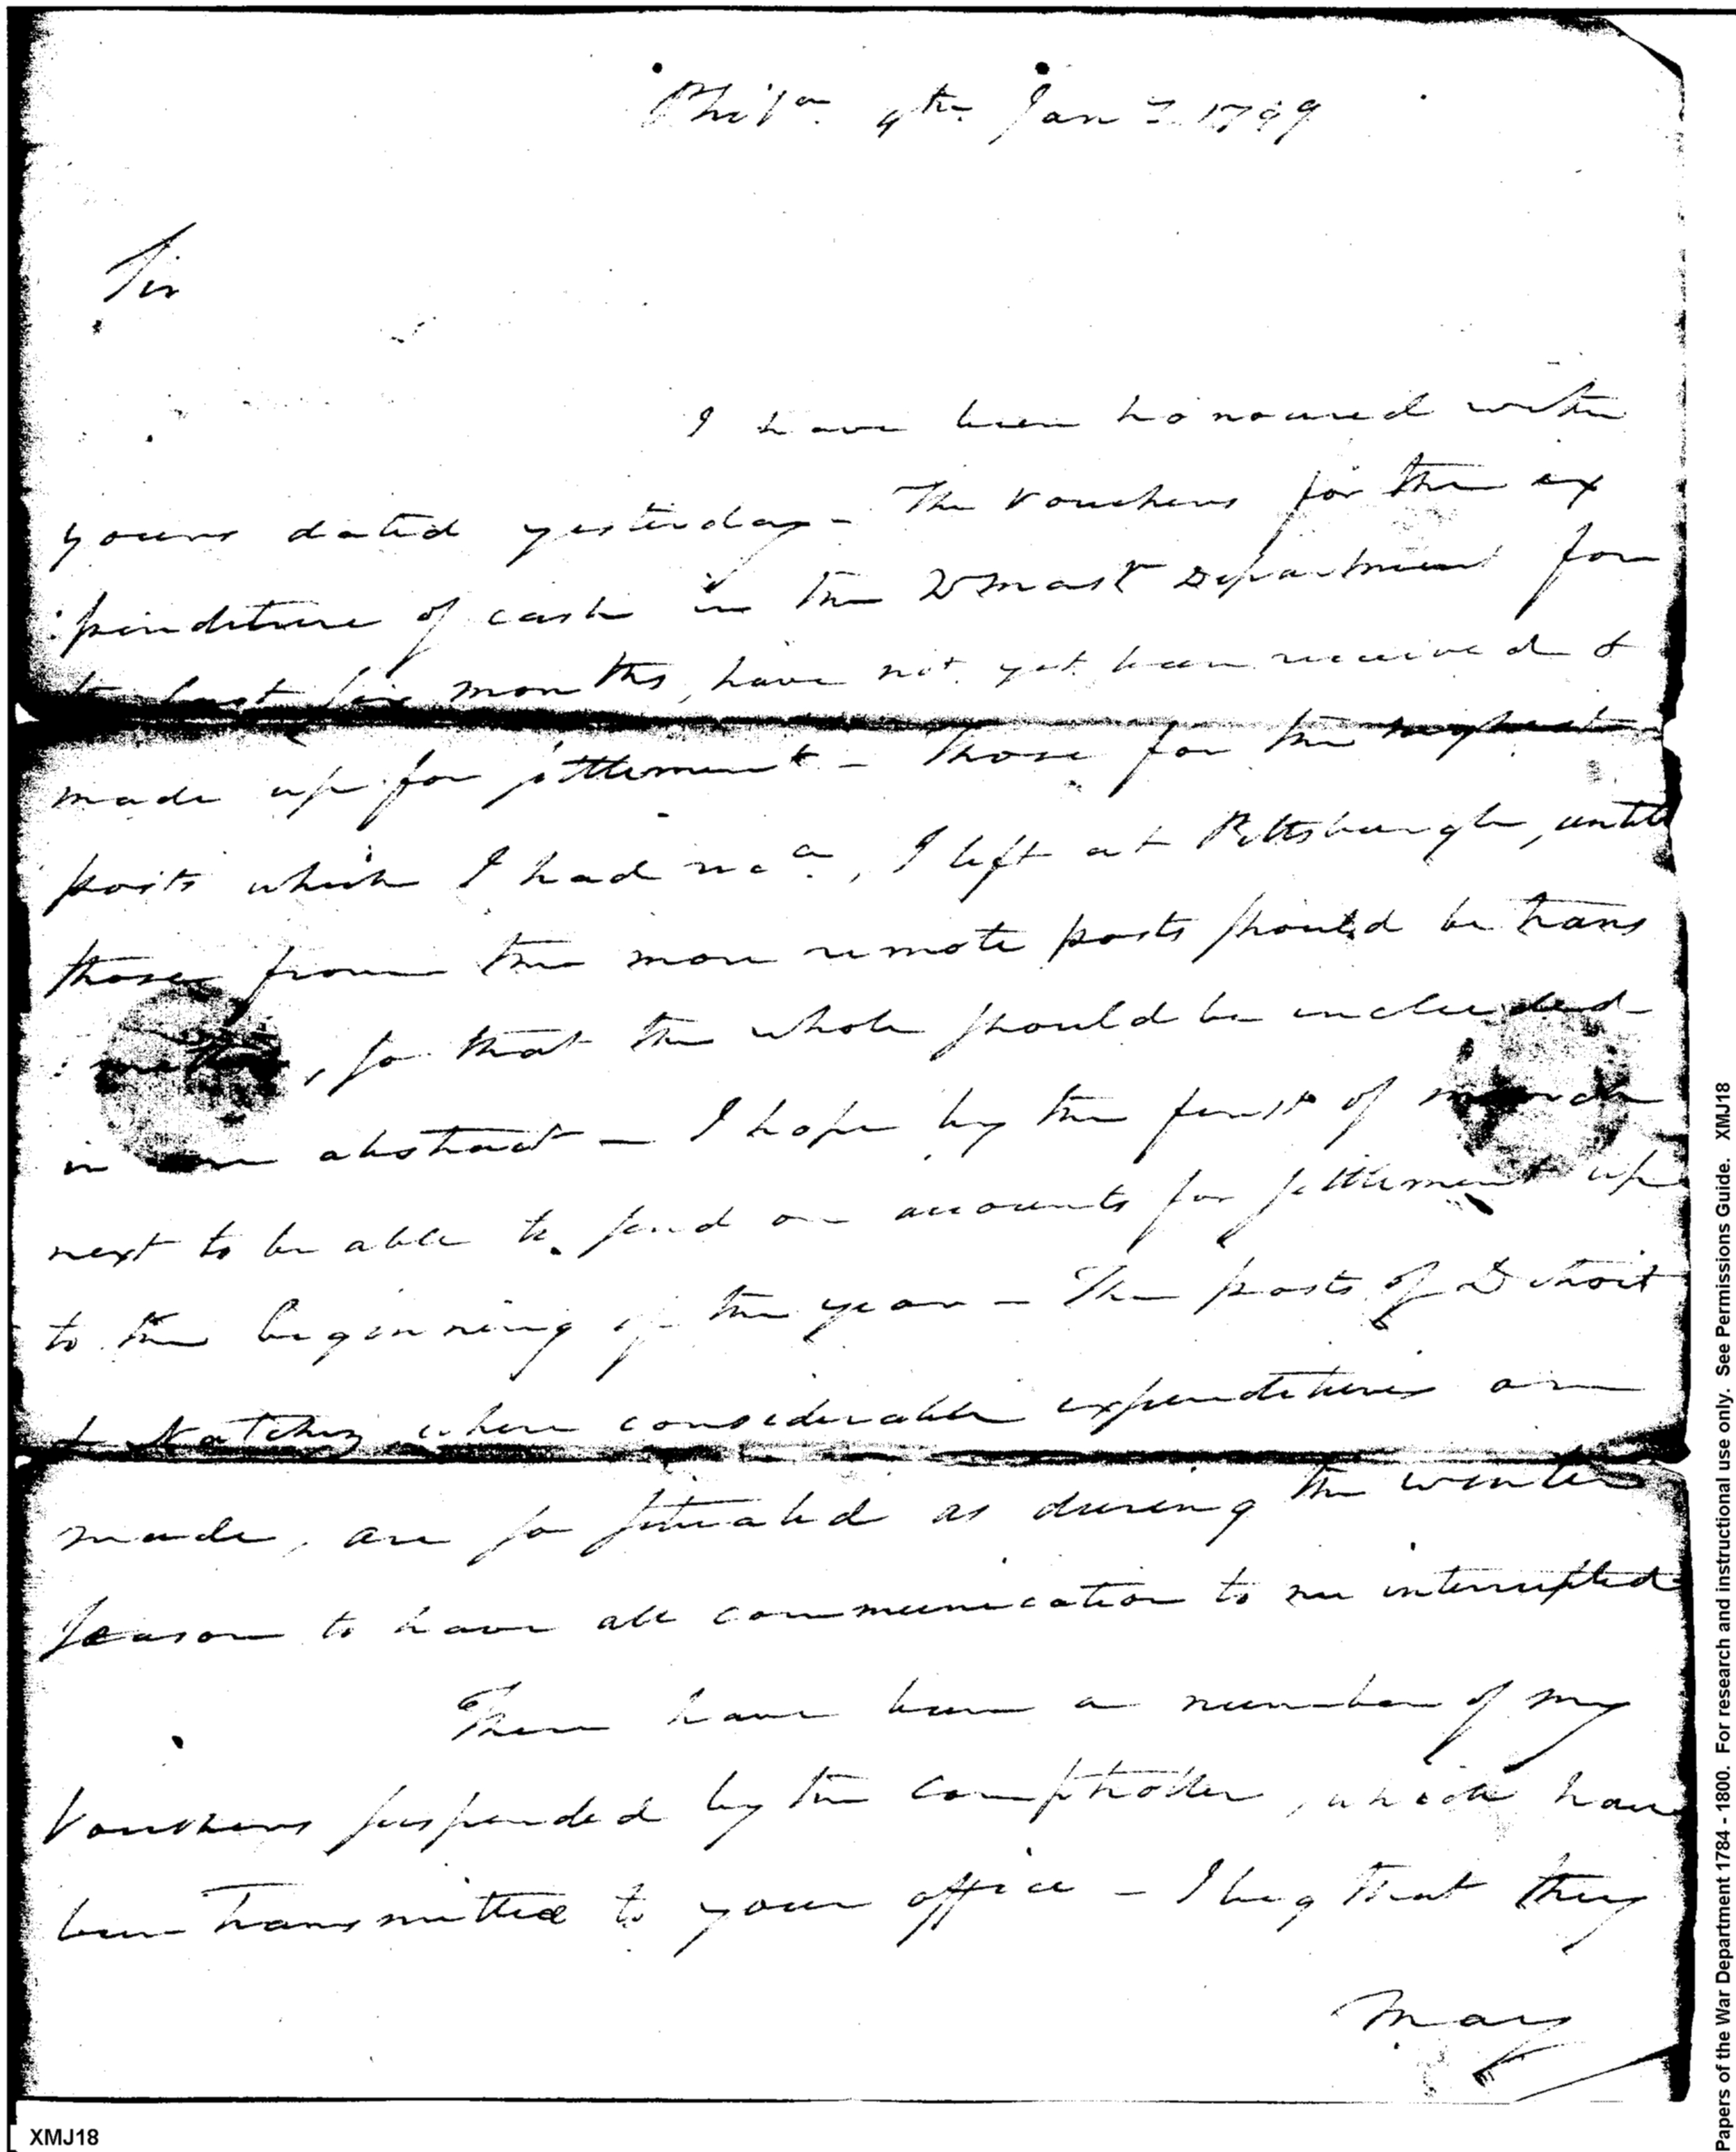 Phil.a 9th Jany 1799
Sir
I have been honoured with
yours dated yesterday - The Vouchers for the ex
:penditure of cash in the QrMastr Department for
the last six months, have not yet been received &
made up for settlement - Those for the
posts which I had recd, I left at Pittsburgh, until
those from the more remote posts should be trans
:mitted, so that the whole should be included
in one abstract - I hope by the first of March
next to be able to send on accounts for settlement up
to the beginning of the year - The posts of Detroit
& Natchez where considerable expenditures are
made, are so situated as during the winter
season to have all communication to me interrupted
There have been a number of my
Vouchers suspended by the Comptroller, which have
been transmitted to your office - I beg that they
may
XMJ18
Papers of the War Department 1784 - 1800. For research and instructional use only. See Permissions Guide. XMJ18